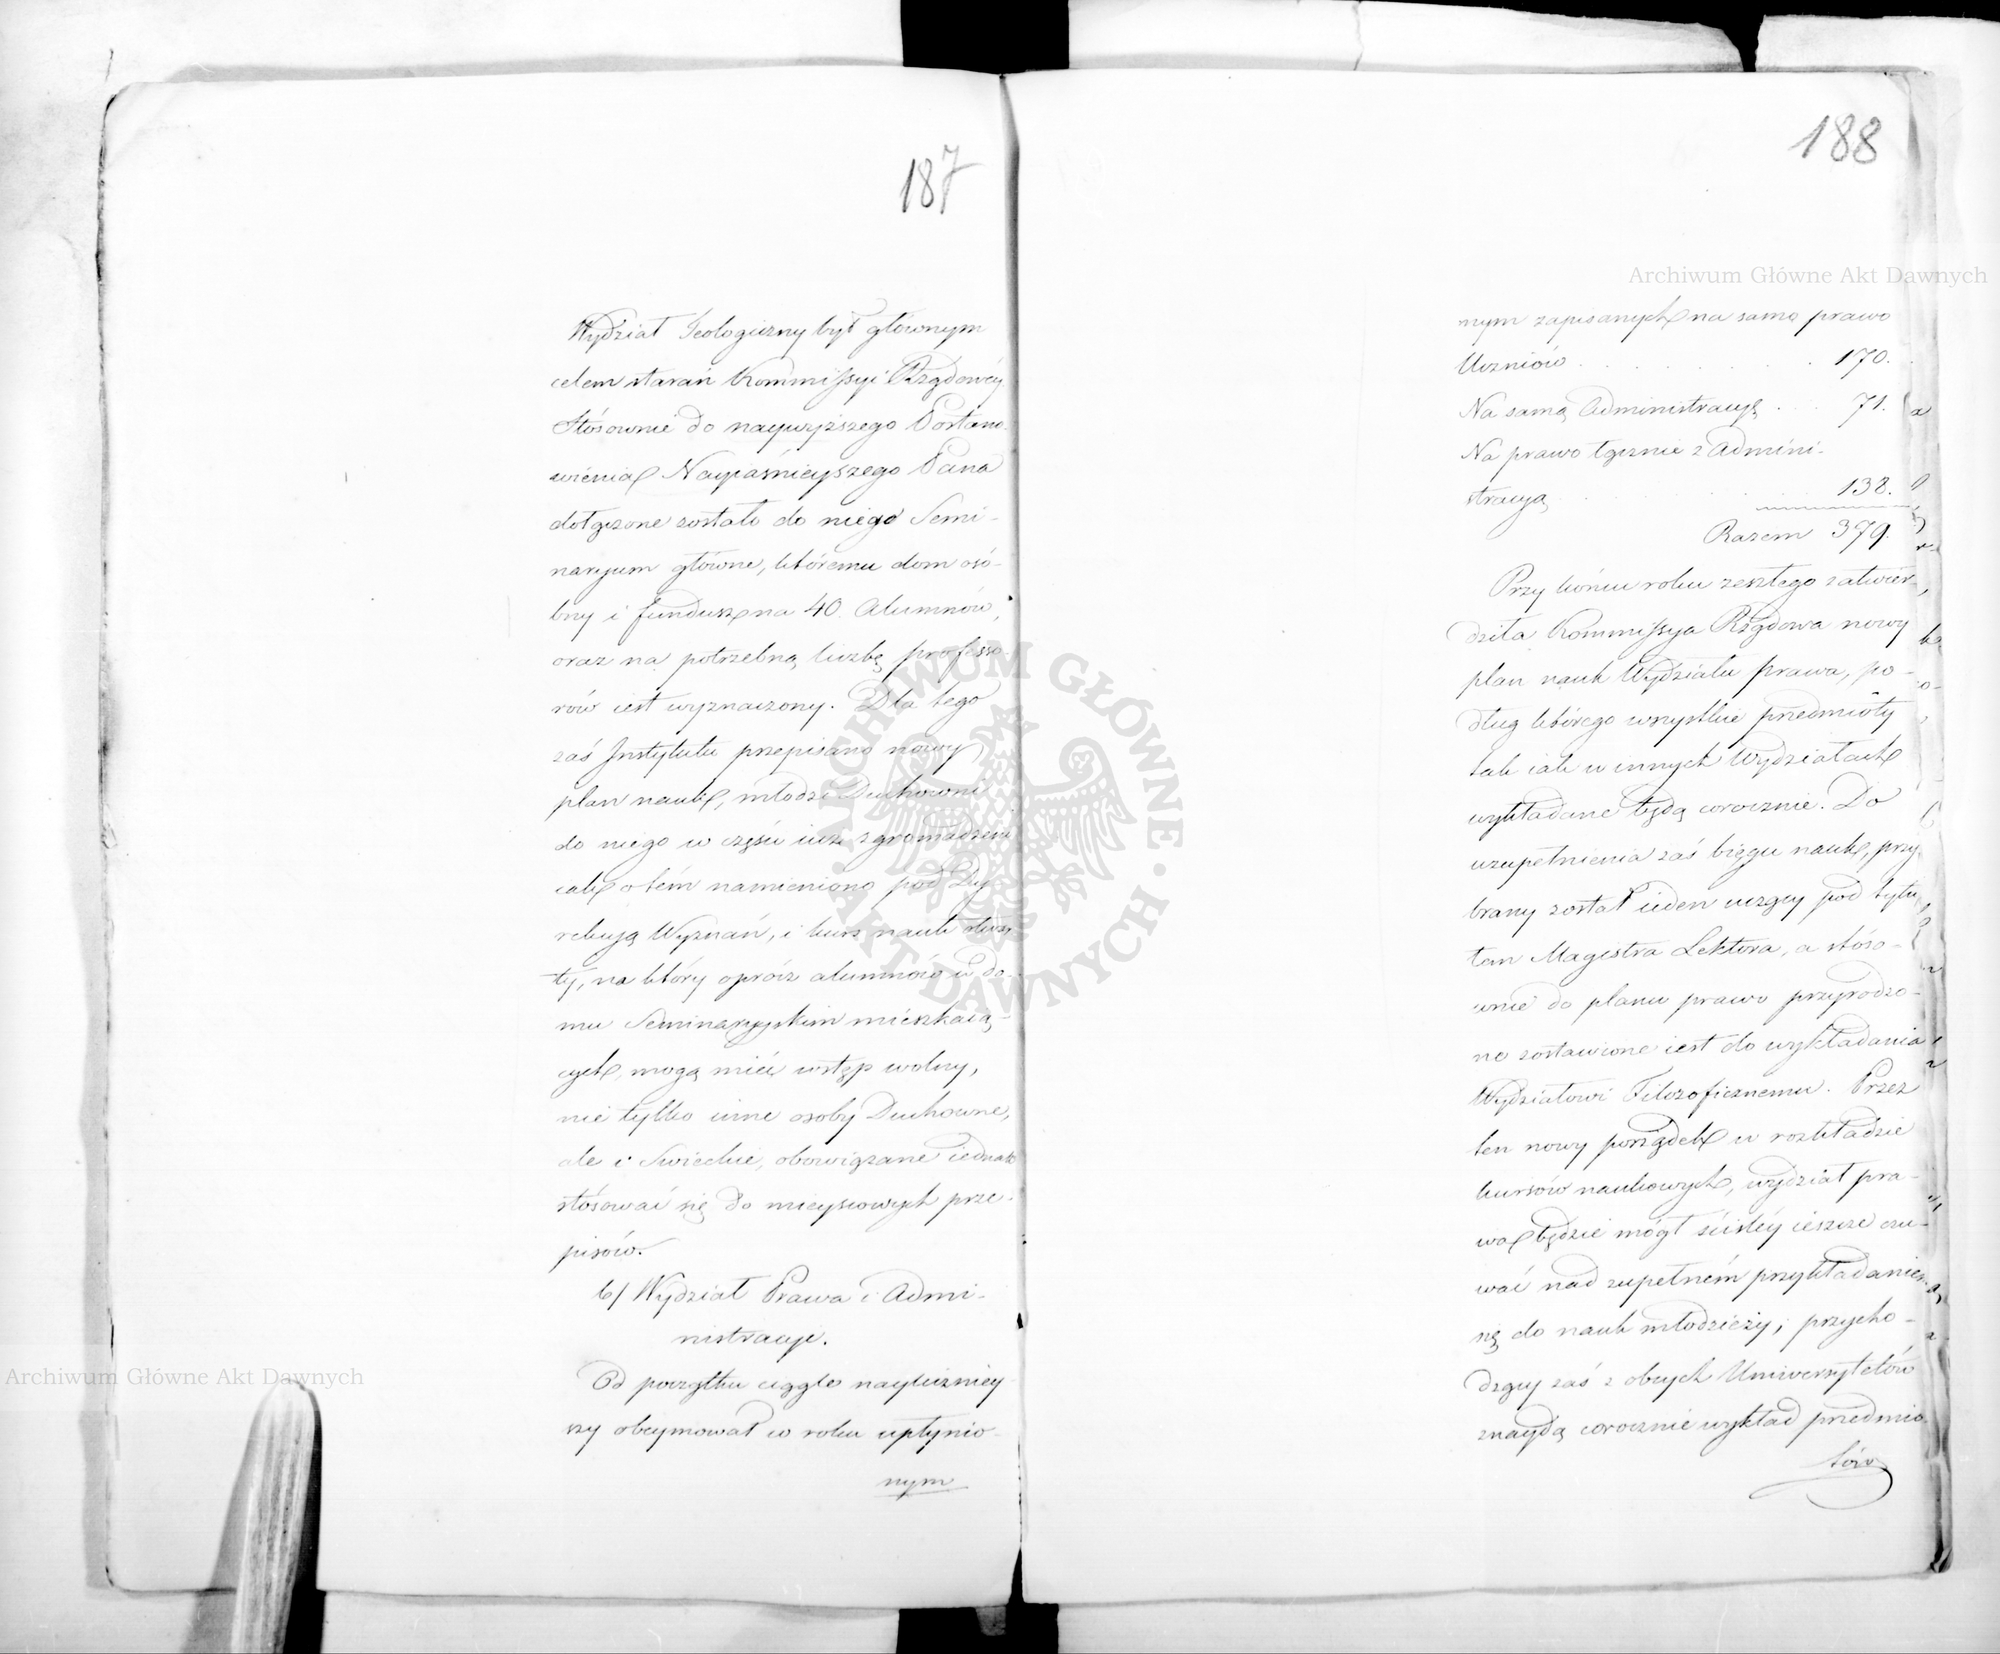 187
Wydział Teologiczny był głównym
celem starań Kommissyi Rządowéy
Stósownie do naywyższego Postano-
wienia Nayjaśnieyszego Pana
dołączone zostało do niego Semi-
naryum główne, któremu dom osó-
bny i fundusz na 40. Alumnów,
oraz na potrzebną liczbę professo-
rów iest wyznaczony. Dla tego
zaś Instytutu przepisano nowy
plan nauk, młodzi Duchowni
do niego w części iuż zgromadzeni
iak o tém namieniono pod Dy-
rekcyą Wyznań, i kurs nauk
na który oprócz alumnów w do-
mu Seminaryyskim mieszkaią-
cych, mogą mieć wstęp wolny,
nie tylko inne osoby Duchowne,
ale i Swieckie, obowiązane iednak
stósować się do mieyscowych prze-
pisów.
b/ Wydział Prawa i Admi-
nistracyi.
Od początku ciągle nayliczniey-
szy obeymował w roku upłynio-
nym
188
nym zapisanych na samo prawo
Uczniów . . . . . . 170.
Na samą Administracyą . . . 71.
Na prawo łącznie z Admini-
stracyą . . . . . 138.
Razem 379.
Przy końcu roku zeszłego zatwier-
dziła Kommissya Rządowa nowy
plan nauk Wydziału prawa, po-
dług którego wszystkie przedmioty
tak iak w innych Wydziałach
wykładane będą corocznie. Do
uzupełnienia zaś biegu nauk, przy-
brany został ieden uczący pod tytu-
łem Magistra Lektora, a stóso-
wnie do planu prawo przyrodzo-
ne zostawione iest do wykładania
Wydziałowi Filozoficznemu. Przez
ten nowy porządek w rozkładzie
kursów naukowych, wydział pra-
wa będzie mógł ściśléy ieszcze czu-
wać nad zupełném przykładaniem
się do nauk młodzieży; przycho-
dzący zaś z obcych Uniwersytetów
znaydą corocznie wykład przedmio-
tów
Archiwum Główne Akt Dawnych
Archiwum Główne Akt Dawnych
ARCHIWUM GŁÓWNE
AKT DAWNYCH